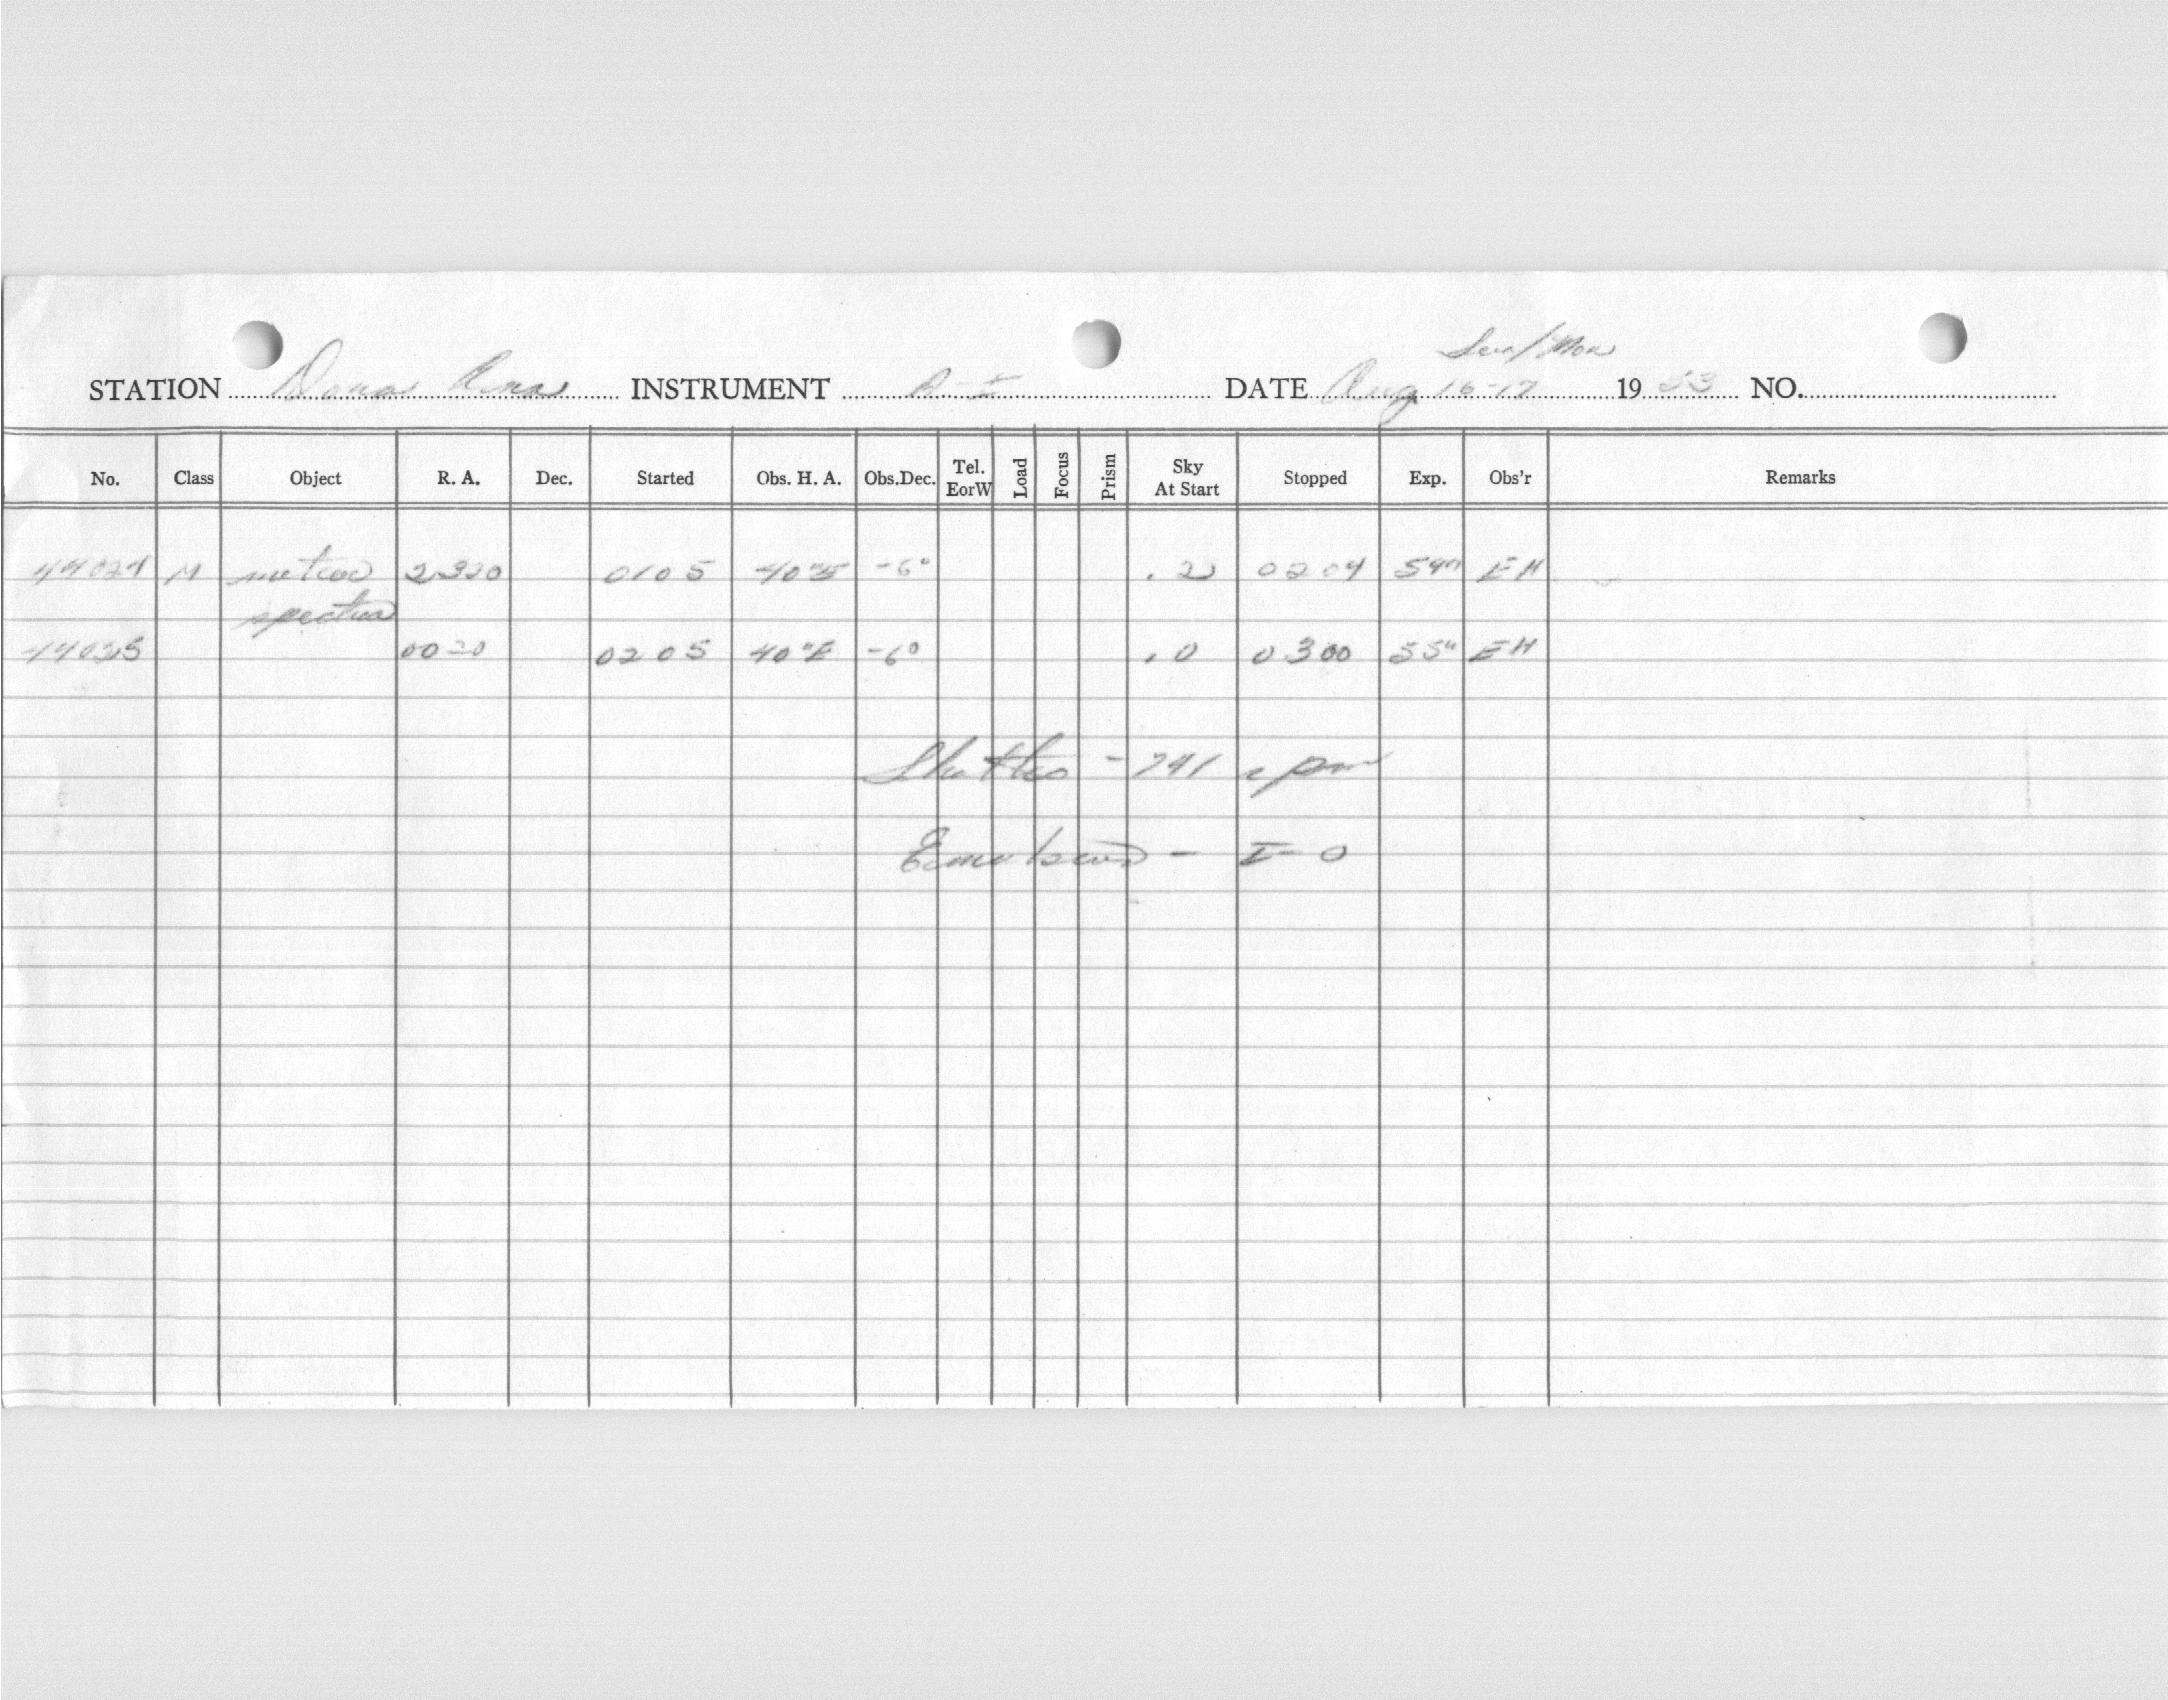 Sun/Mon
STATION Dona Ana INSTRUMENT A-I DATE Aug 16-17 1953 NO.
No. Class Object R. A. Dec. Started Obs. H. A. Obs.Dec. Tel. EorW Load Focus Prism Sky At Start Stopped Exp. Obs'r Remarks
M meteor 2320 0105 40mE -6° .2 0204 59m EH
spectra
0020 0205 40mE -6° .0 0300 55m EH
Shutter - 741 rpm
Emulsion - I-O